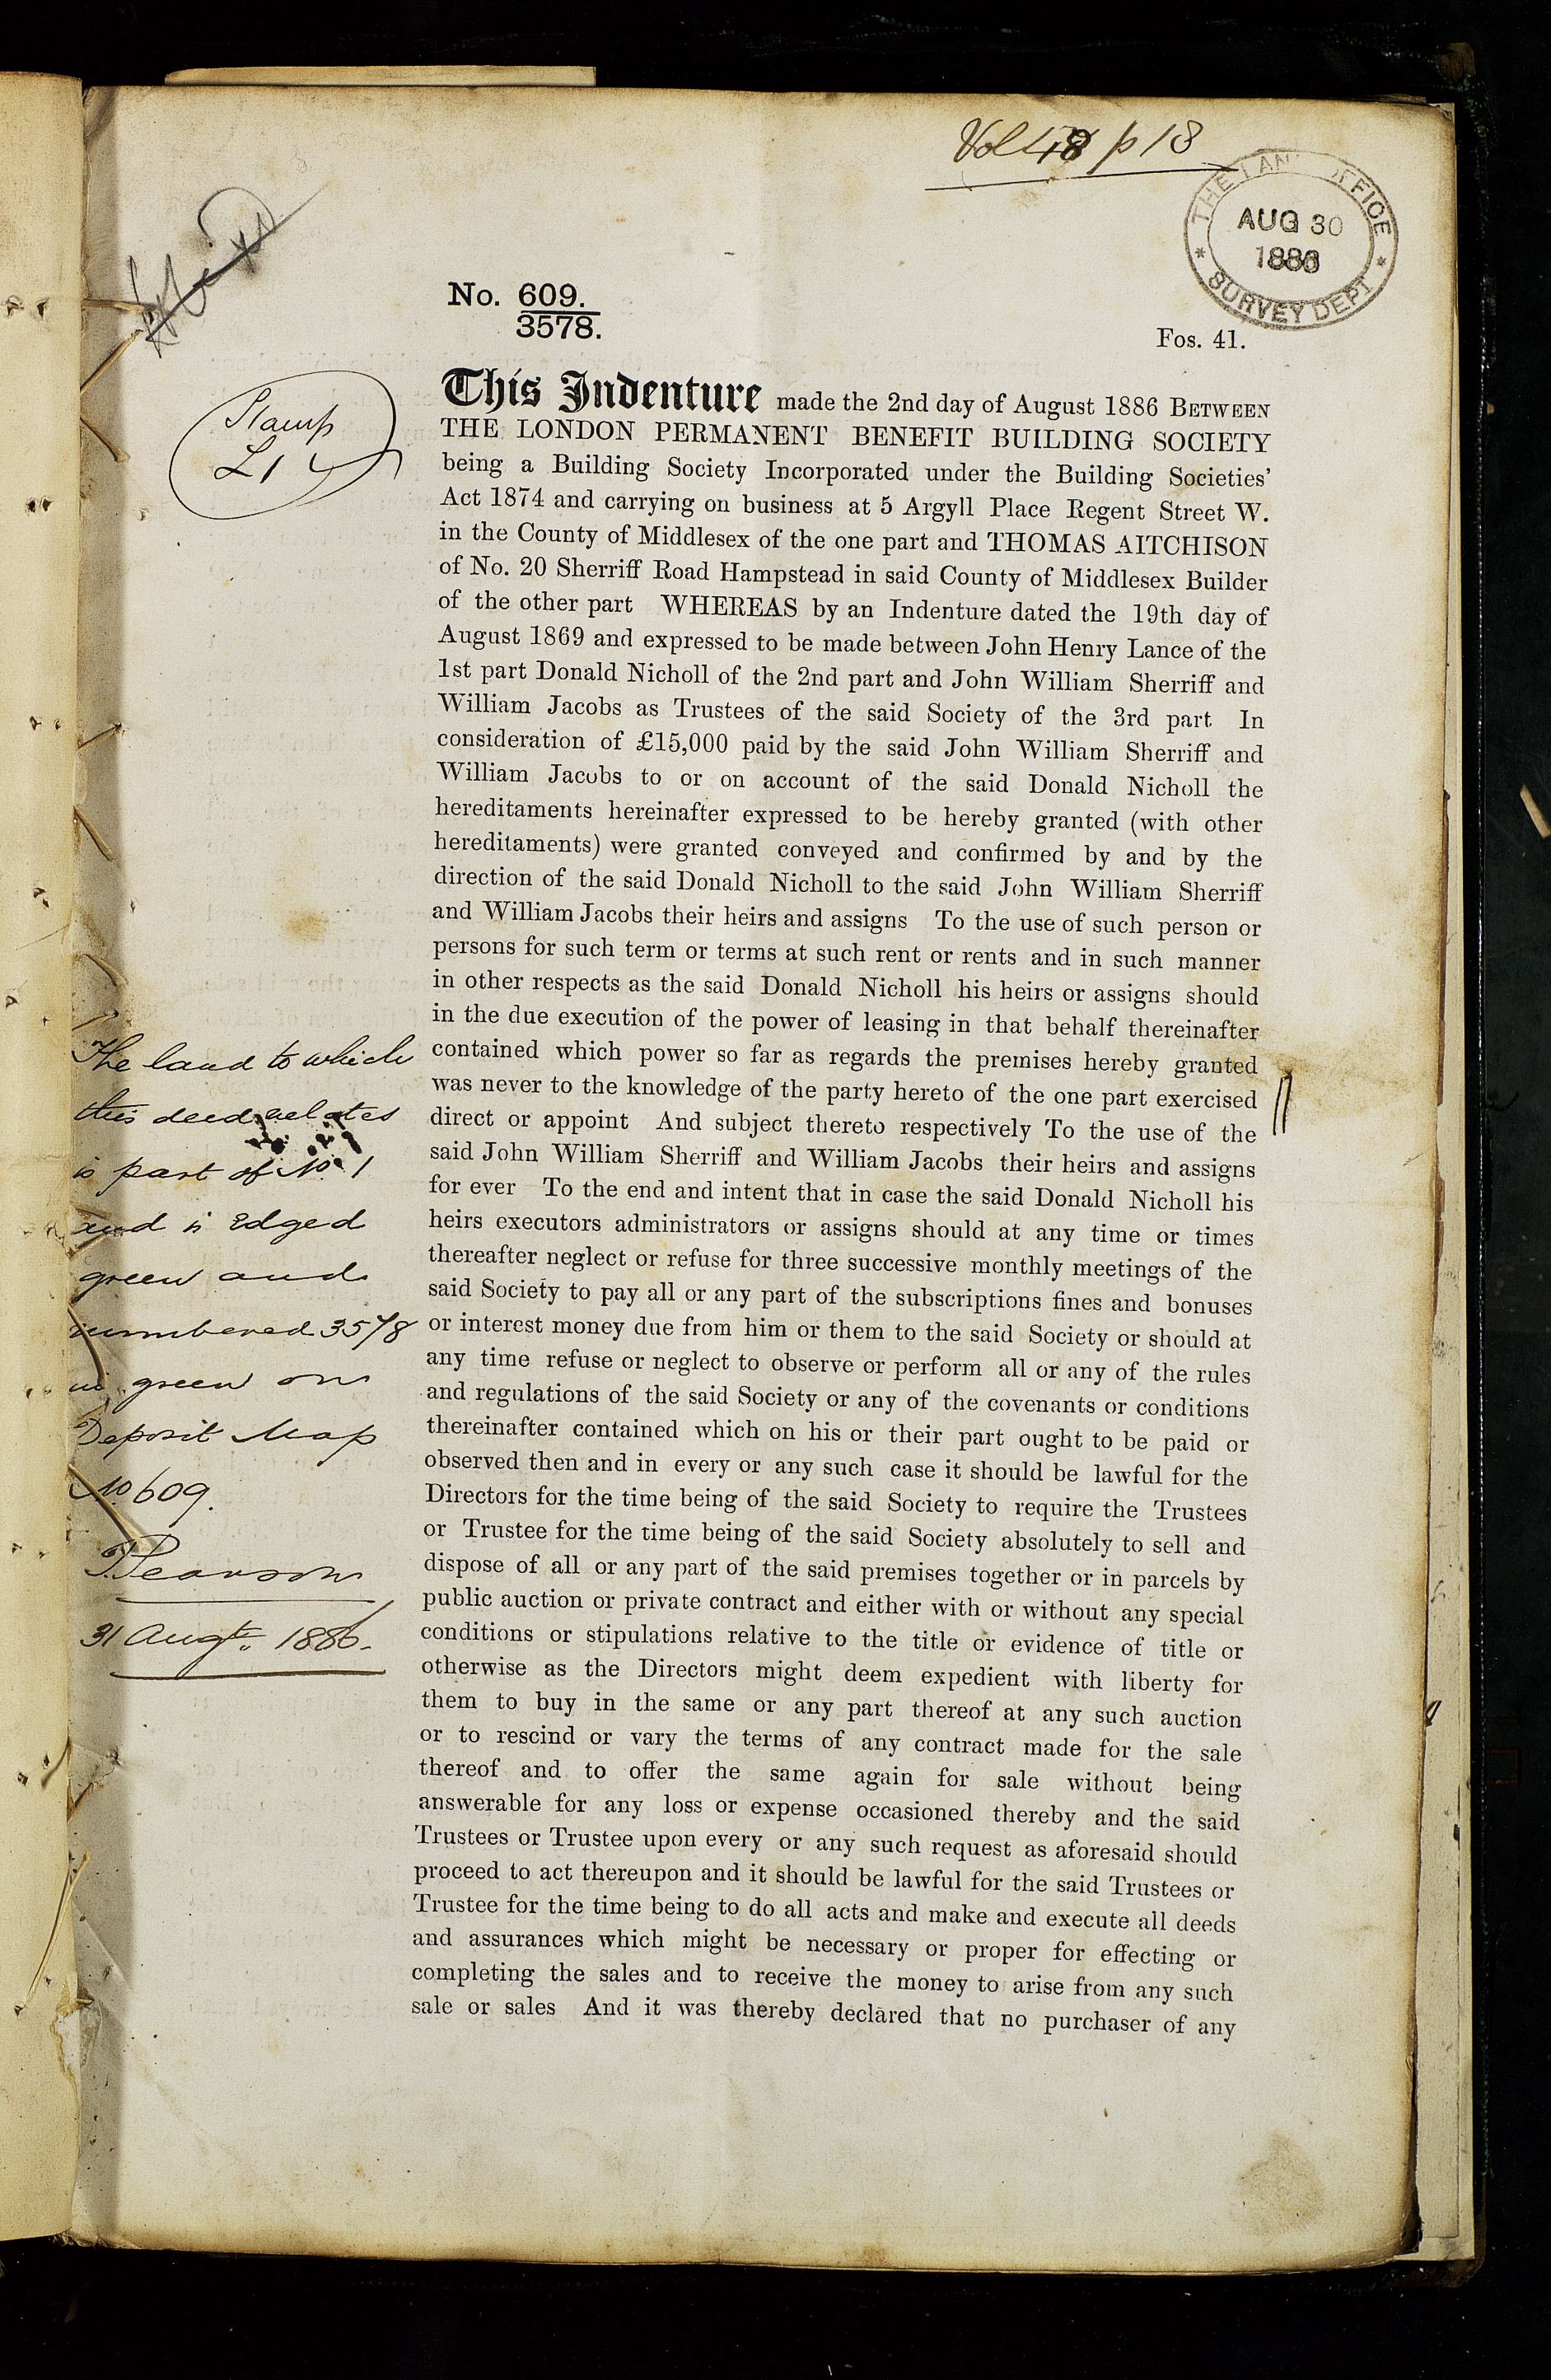 Vol 48 p 18
THE LAND OFFICE
AUG 30
1886
SURVEY DEPT
No. 609.
3578.
Fos. 41.
Stamp
£1
This Indenture made the 2nd day of August 1886 BETWEEN
THE LONDON PERMANENT BENEFIT BUILDING SOCIETY
being a Building Society Incorporated under the Building Societies'
Act 1874 and carrying on business at 5 Argyll Place Regent Street W.
in the County of Middlesex of the one part and THOMAS AITCHISON
of No. 20 Sherriff Road Hampstead in said County of Middlesex Builder
of the other part WHEREAS by an Indenture dated the 19th day of
August 1869 and expressed to be made between John Henry Lance of the
1st part Donald Nicholl of the 2nd part and John William Sherriff and
William Jacobs as Trustees of the said Society of the 3rd part In
consideration of £15,000 paid by the said John William Sherriff and
William Jacobs to or on account of the said Donald Nicholl the
hereditaments hereinafter expressed to be hereby granted (with other
hereditaments) were granted conveyed and confirmed by and by the
direction of the said Donald Nicholl to the said John William Sherriff
and William Jacobs their heirs and assigns To the use of such person or
persons for such term or terms at such rent or rents and in such manner
in other respects as the said Donald Nicholl his heirs or assigns should
in the due execution of the power of leasing in that behalf thereinafter
contained which power so far as regards the premises hereby granted
was never to the knowledge of the party hereto of the one part exercised
direct or appoint And subject thereto respectively To the use of the
said John William Sherriff and William Jacobs their heirs and assigns
for ever To the end and intent that in case the said Donald Nicholl his
heirs executors administrators or assigns should at any time or times
thereafter neglect or refuse for three successive monthly meetings of the
said Society to pay all or any part of the subscriptions fines and bonuses
or interest money due from him or them to the said Society or should at
any time refuse or neglect to observe or perform all or any of the rules
and regulations of the said Society or any of the covenants or conditions
thereinafter contained which on his or their part ought to be paid or
observed then and in every or any such case it should be lawful for the
Directors for the time being of the said Society to require the Trustees
or Trustee for the time being of the said Society absolutely to sell and
dispose of all or any part of the said premises together or in parcels by
public auction or private contract and either with or without any special
conditions or stipulations relative to the title or evidence of title or
otherwise as the Directors might deem expedient with liberty for
them to buy in the same or any part thereof at any such auction
or to rescind or vary the terms of any contract made for the sale
thereof and to offer the same again for sale without being
answerable for any loss or expense occasioned thereby and the said
Trustees or Trustee upon every or any such request as aforesaid should
proceed to act thereupon and it should be lawful for the said Trustees or
Trustee for the time being to do all acts and make and execute all deeds
and assurances which might be necessary or proper for effecting or
completing the sales and to receive the money to arise from any such
sale or sales And it was thereby declared that no purchaser of any
The land to which
this deed relates
is part of No. 1
and is Edged
green and
numbered 3578
in green on
Deposit Map
No. 609.
T. Pearson
31 Augt. 1886.